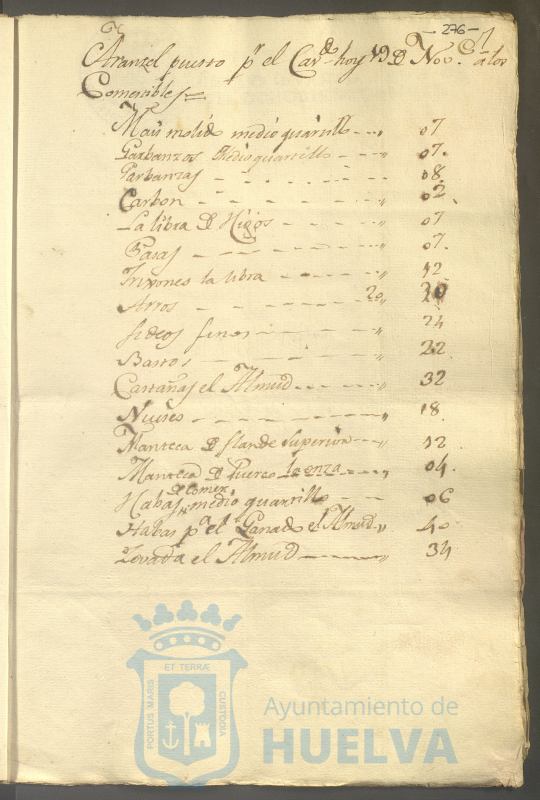 - 276 -
Aranzel puesto pr el Cavdo hoy 19 D Nov.e a los
Comestibles
Mais molido medio quartillo - - - 07
Garbanzos Medio quartillo - - - 07.
Garbanzas - - - - 08
Carbon - - - - 02.
La libra D Higos - - - - 07
Pasas - - - - 07.
la libra - - - - 12
Arros - - - - 20
fideos finos - - - - 24
Bastos - - - - 22.
Castañas el Almud - - - - 32
Nueses - - - - 18.
Manteca D flandes Superior - - - 12
Manteca D Puerco la onza - - - 04.
de Comer
Habas medio quartillo - - 06
Habas pa el Ganado el Almud 40
Zevada el Almud - - - 34
PORTUS MARIS
ET TERRÆ
CUSTODIA
Ayuntamiento de
HUELVA